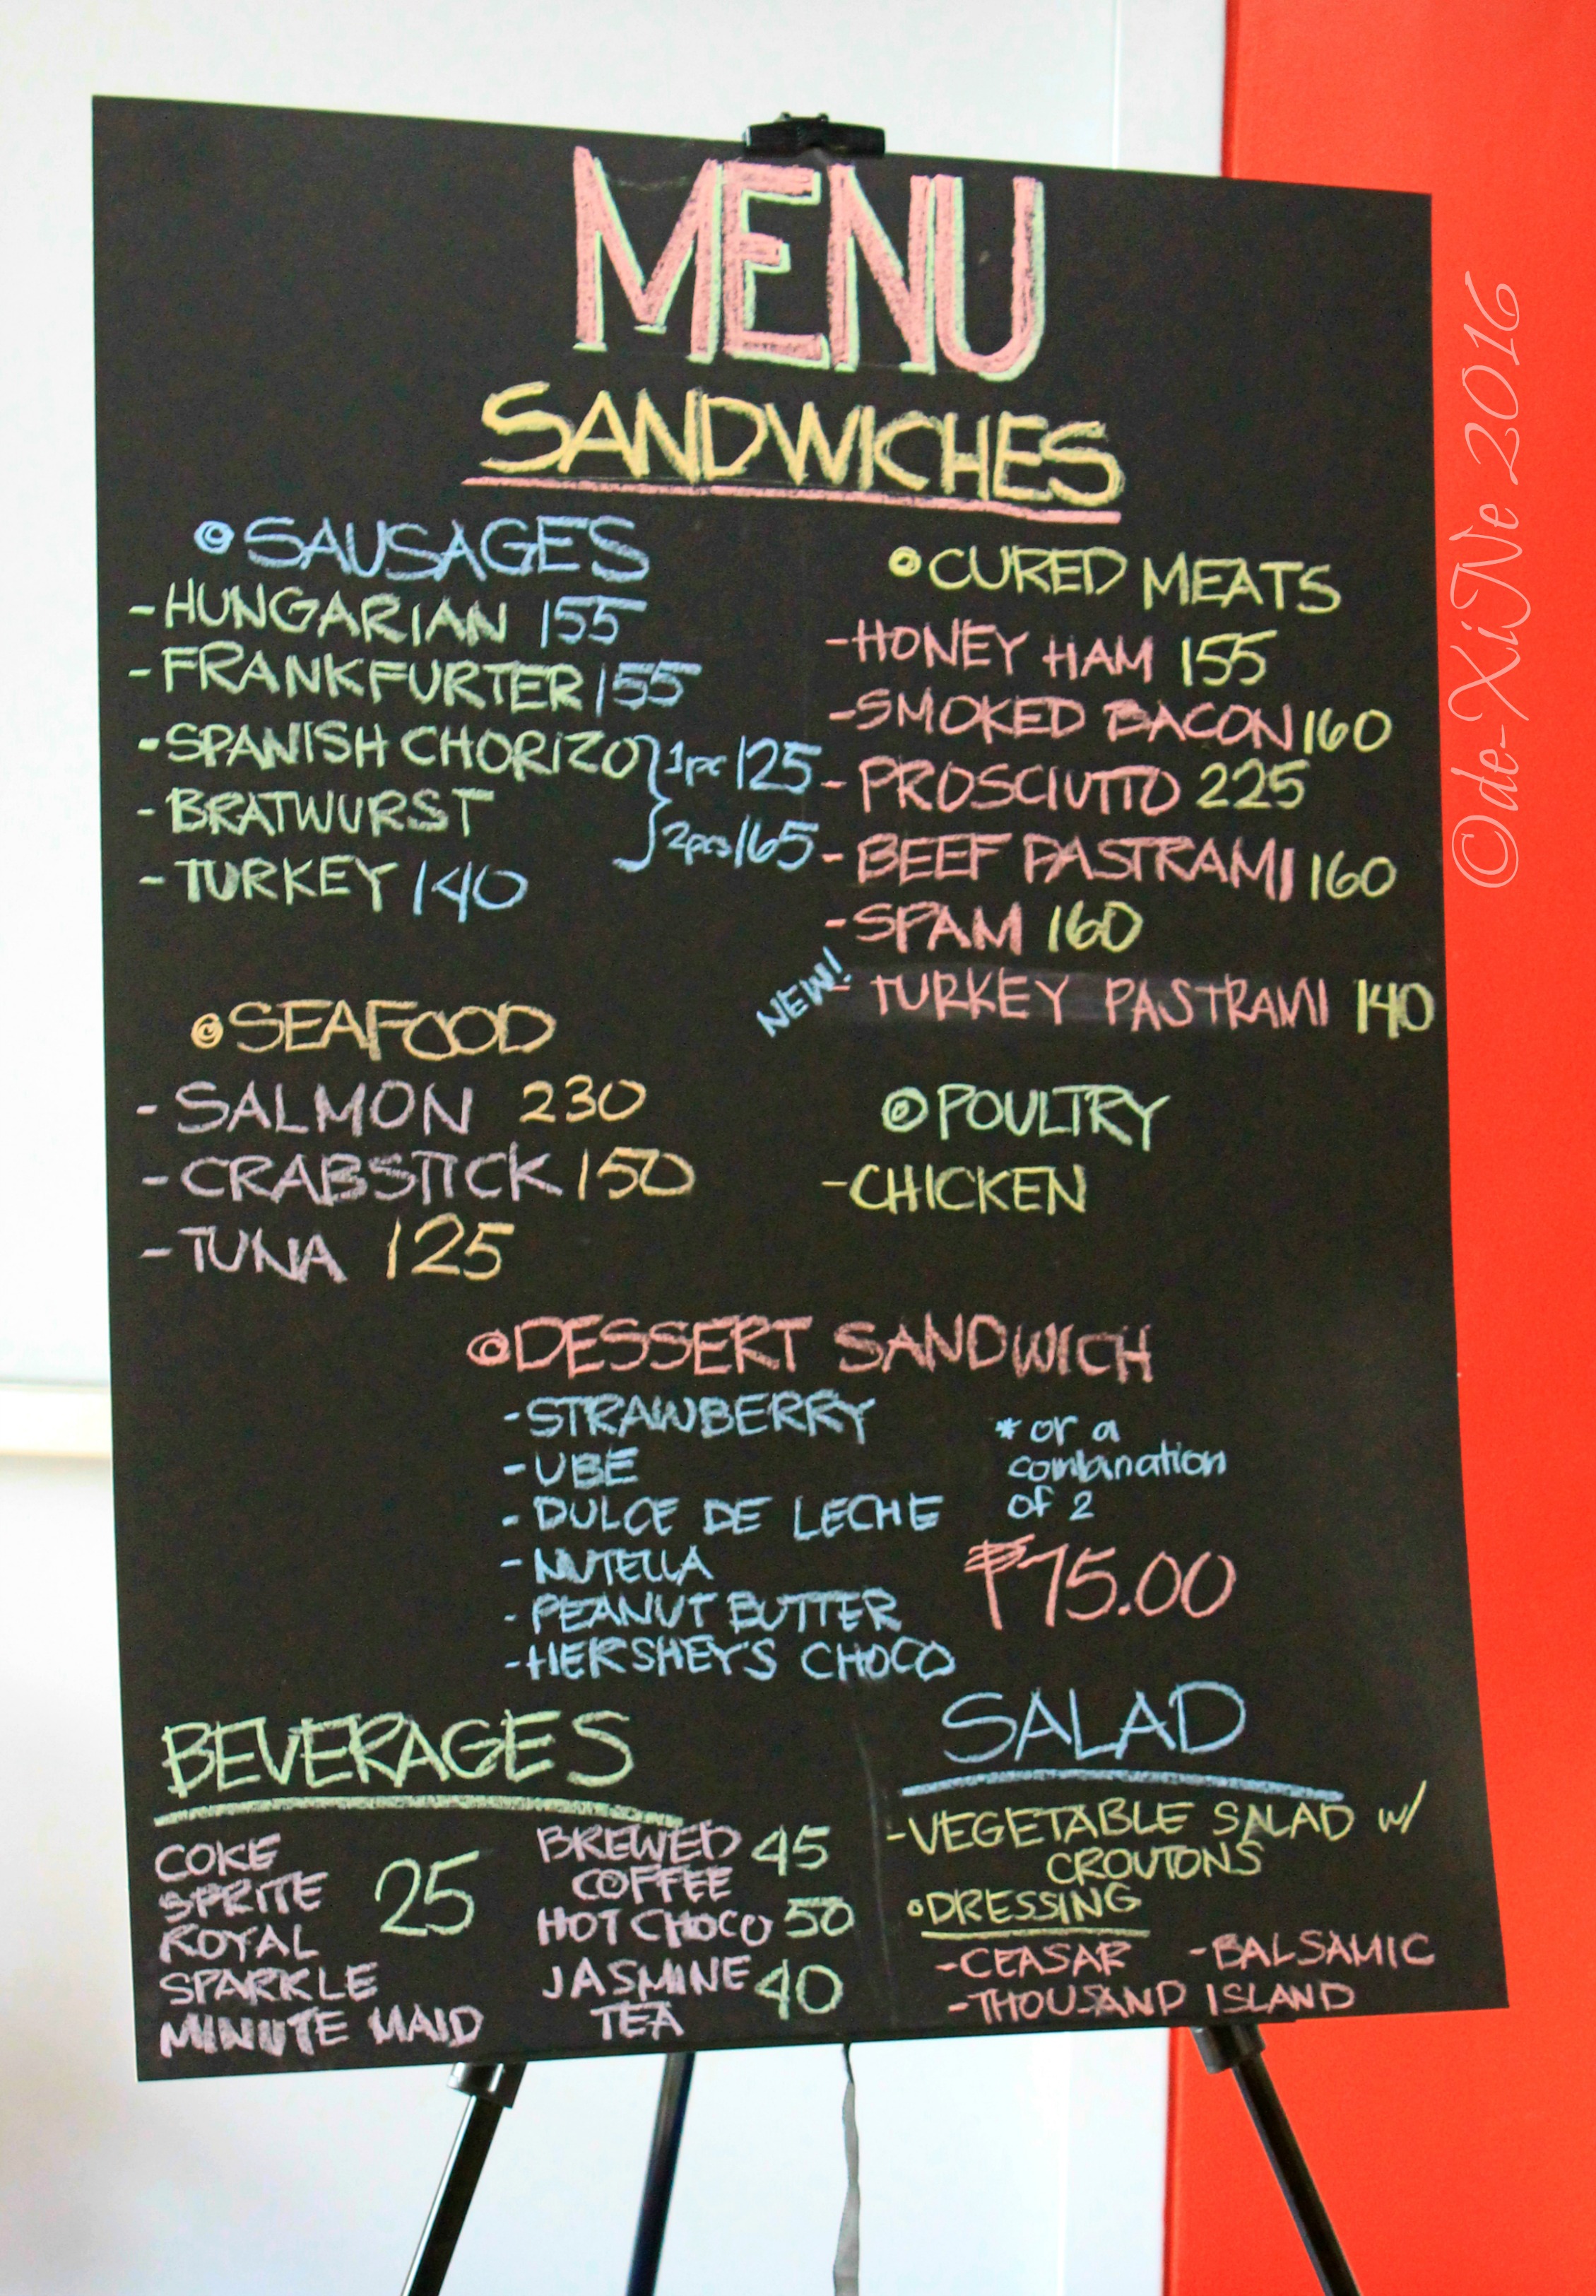 MENU
SANDWICHES
SAUSAGES
-HUNGARIAN 155
-FRANKFURTER 155
-SPANISH CHORIZO } 1pc 125
-BRATWURST } 2pcs 165
-TURKEY 140
CURED MEATS
-HONEY HAM 155
-SMOKED BACON 160
-PROSCIUTTO 225
-BEEF PASTRAMI 160
-SPAM 160
NEW! - TURKEY PASTRAMI 140
SEAFOOD
-SALMON 230
-CRABSTICK 150
-TUNA 125
POULTRY
-CHICKEN
DESSERT SANDWICH
-STRAWBERRY
-UBE
-DULCE DE LECHE
-NUTELLA
-PEANUT BUTTER
-HERSHEY'S CHOCO
* or a
combination
of 2
₱75.00
BEVERAGES
COKE
SPRITE 25
ROYAL
SPARKLE
MINUTE MAID
BREWED 45
COFFEE
HOT CHOCO 50
JASMINE 40
TEA
SALAD
-VEGETABLE SALAD w/
CROUTONS
DRESSING
-CEASAR -BALSAMIC
-THOUSAND ISLAND
©de-XiNe 2016